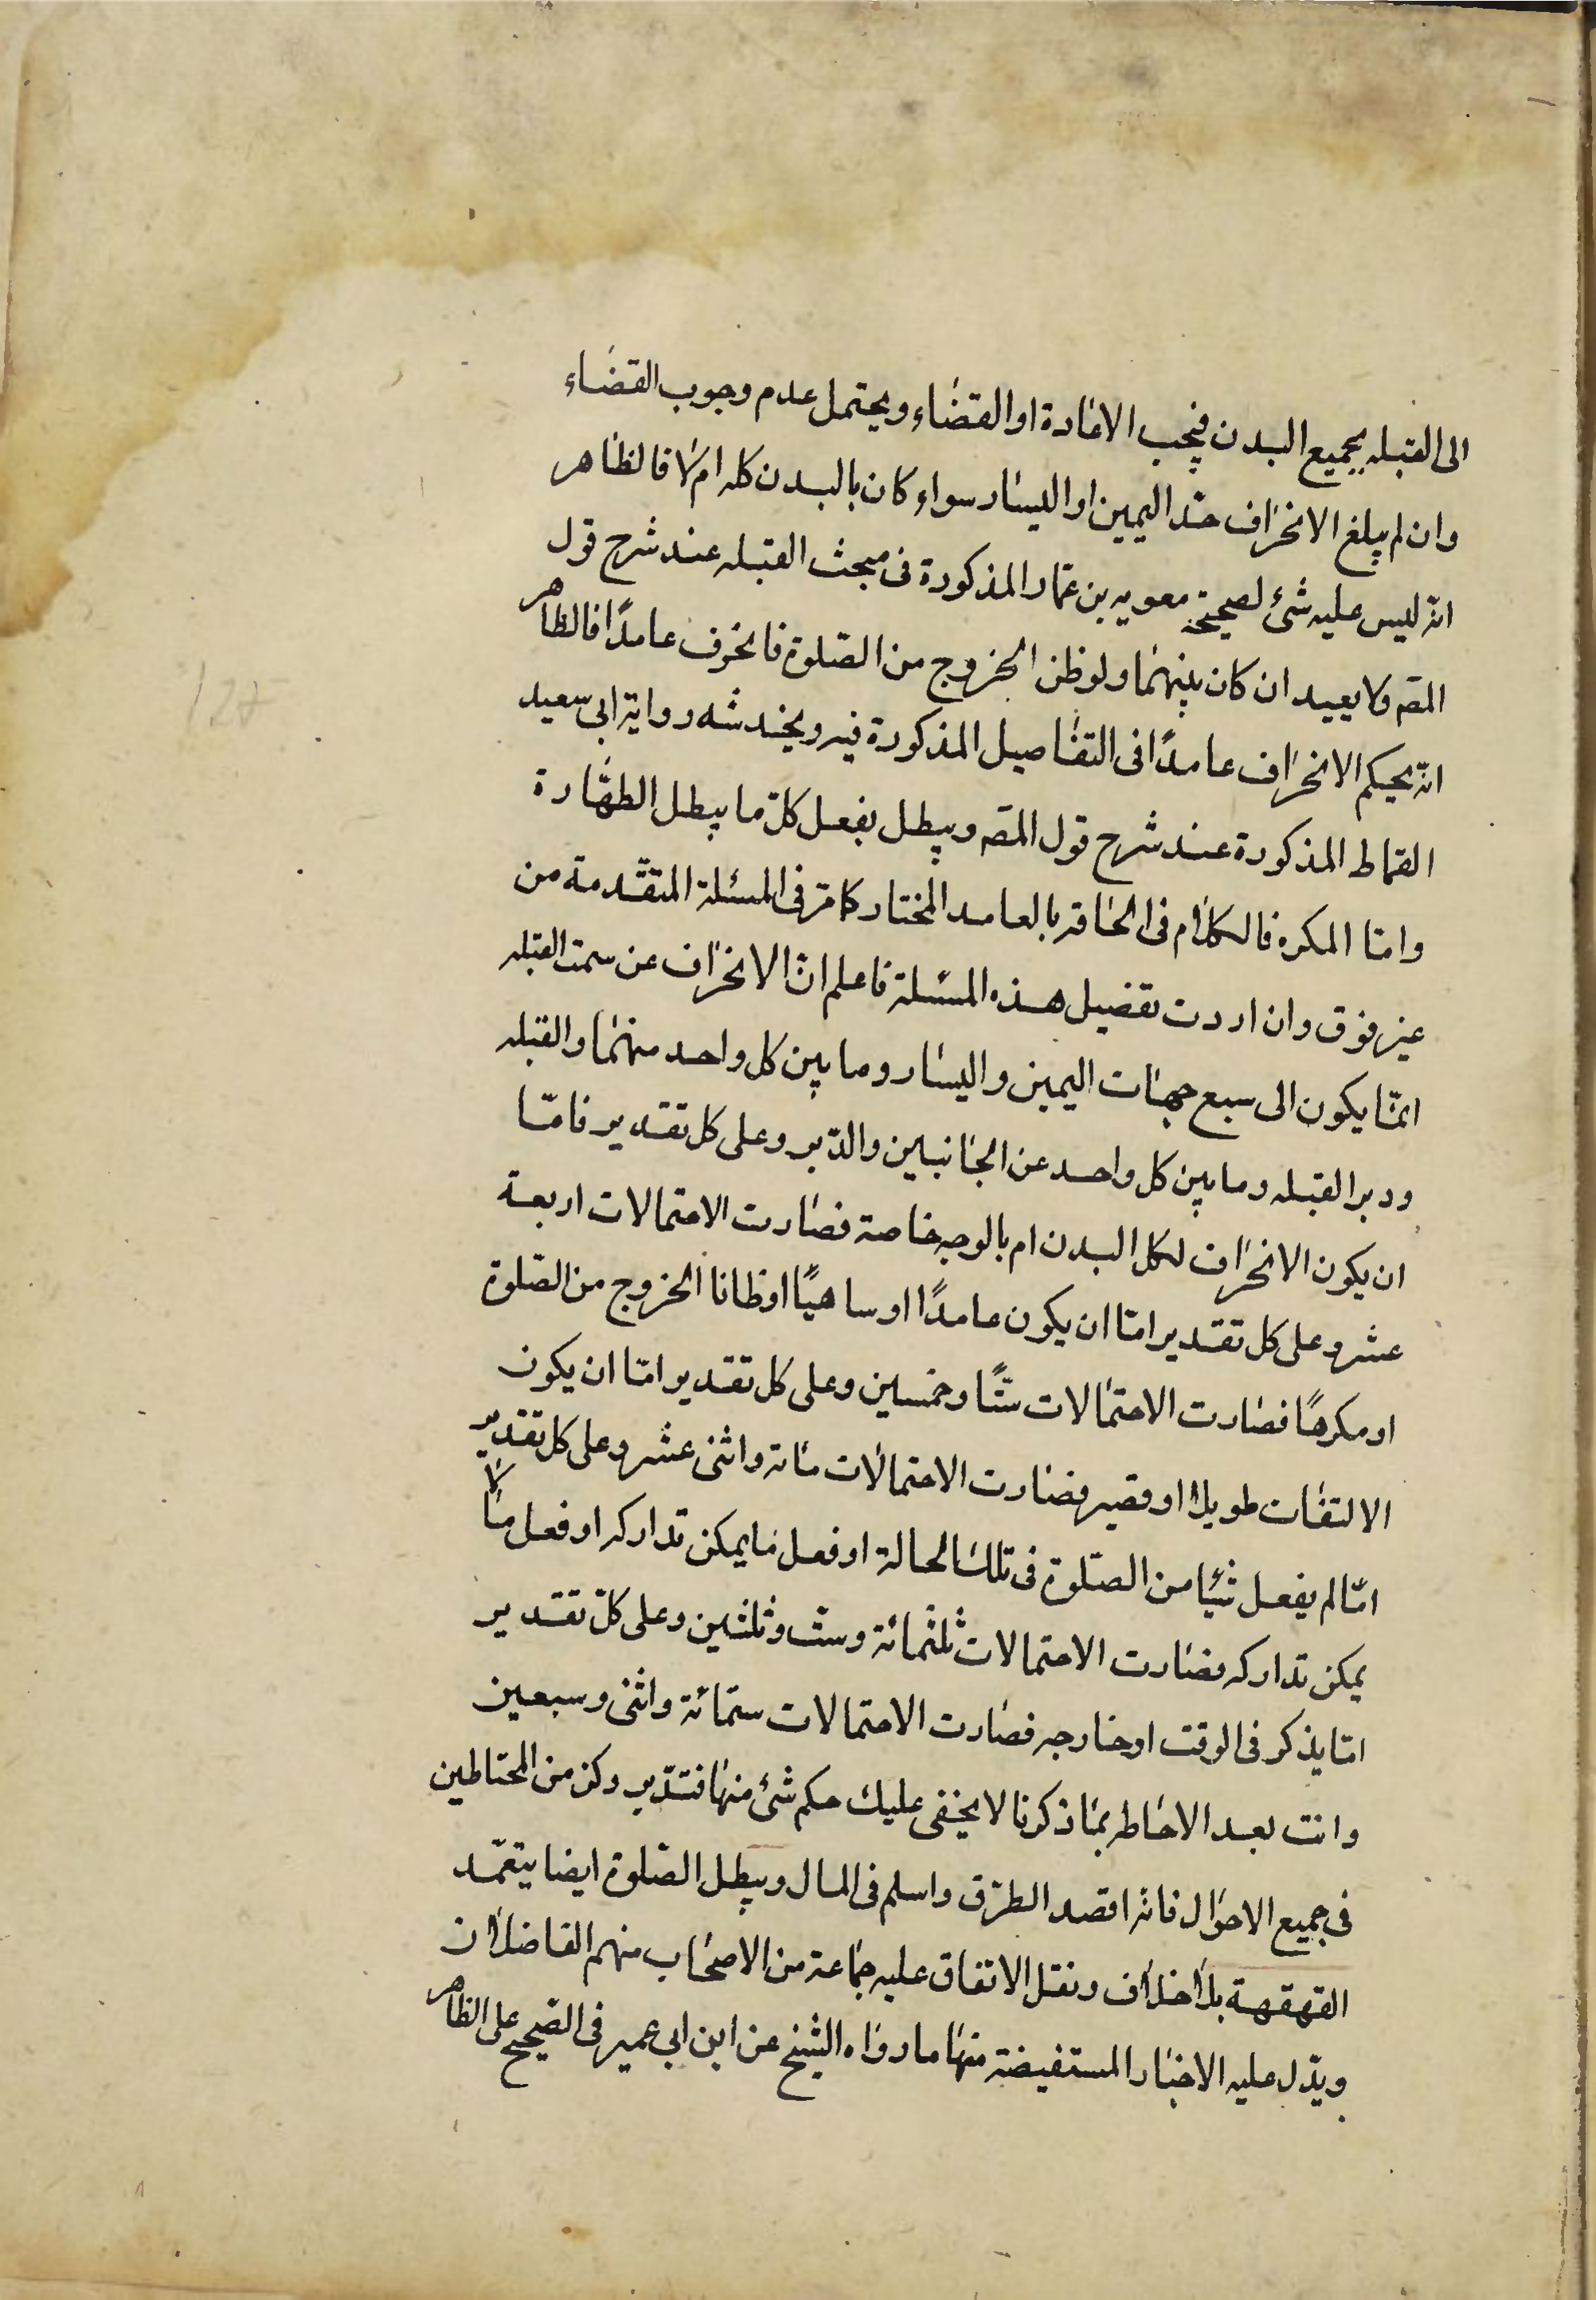 الى القبله بجميع البدن فيجب الاعادة او القضاء ويحتمل عدم وجوب القضاء
وان لم يبلغ الانحراف حد اليمين او اليسار سواء كان بالبدن كله ام لا فالظاهر
انه ليس عليه شئ لصحيحة معويه بن عمار المذكورة فى مبحث القبله عند شرح قول
المصه ولا يعيد ان كان بينهما ولو ظن الخروج من الصلوة فانحرف عامدًا فالظاهر
انه بحكم الانحراف عامدًا فى التفاصيل المذكورة فيه ويخدشه رواية ابى سعيد
القماط المذكورة عند شرح قول المصه ويبطل بفعل كلّ ما يبطل الطهارة
وامّا المكره فالكلام فى الحاقه بالعامد المختار كما مرّ فى المسئلة المتقدمة من
غير فرق وان اردت تفصيل هذه المسئلة فاعلم انّ الانحراف عن سمت القبله
انمّا يكون الى سبع جهات اليمين واليسار وما بين كل واحد منهما والقبله
ودبر القبله وما بين كل واحد عن الجانبين والدّبر وعلى كل تقدير فامّا
ان يكون الانحراف لكل البدن ام بالوجه خاصة فصارت الاحتمالات اربعة
عشر وعلى كل تقدير امّا ان يكون عامدًا او ساهيًا او ظانا الخروج من الصّلوة
او مكرهًا فصارت الاحتمالات ستًّا وخمسين وعلى كل تقدير امّا ان يكون
الالتفات طويلا او قصير فصارت الاحتمالات مائة واثنى عشر وعلى كل تقدير
امّا لم يفعل شيئا من الصّلوة فى تلك الحالة او فعل ما يمكن تداركه او فعل ما لا
يمكن تداركه فصارت الاحتمالات ثلثمائة وستّ وثلثين وعلى كلّ تقدير
امّا يذكر فى الوقت او خارجه فصارت الاحتمالات ستمّائة واثنى وسبعين
وانت بعد الاحاطه بما ذكرنا لا يخفى عليك حكم شئ منها فتدّبر وكن من المحتاطين
فى جميع الاحوال فانه اقصد الطرق واسلم فى المال ويبطل الصّلوة ايضا بتعمّد
القهقهة بلا خلاف ونقل الاتفاق عليه جماعة من الاصحاب منهم الفاضلان
ويدّل عليه الاخبار المستفيضة منها ما رواه الشيخ عن ابن ابى عمير فى الصّحيح على الظاهر